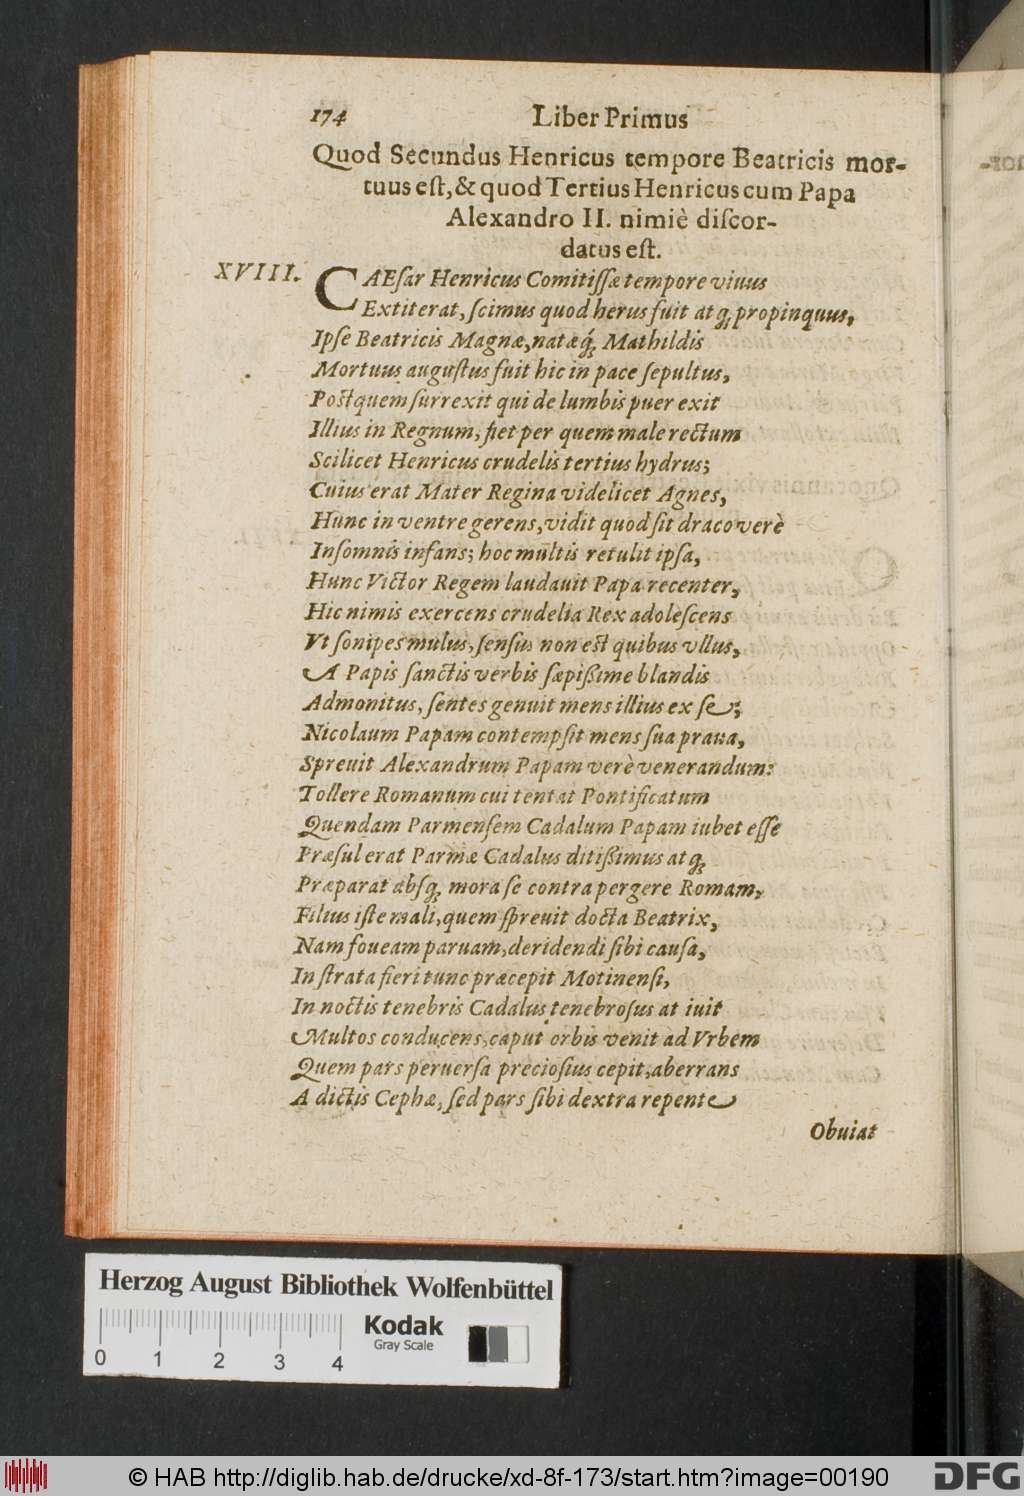 174 Liber Primus
Quod Secundus Henricus tempore Beatricis mor-
tuus eſt, & quod Tertius Henricus cum Papa
Alexandro II. nimiè diſcor-
datus eſt.
XVIII. CAEſar Henricus Comitiſſæ tempore viuus
Extiterat, ſcimus quod herus fuit atq; propinquus,
Ipſe Beatricis Magnæ, natæq́; Mathildis
Mortuus auguſtus fuit hic in pace ſepultus,
Poſt quem ſurrexit qui de lumbis puer exit
Illius in Regnum, fiet per quem male rectum
Scilicet Henricus crudelis tertius hydrus;
Cuius erat Mater Regina videlicet Agnes,
Hunc in ventre gerens, vidit quod ſit draco verè
Inſomnis infans; hoc multis retulit ipſa,
Hunc Victor Regem laudauit Papa recenter,
Hic nimis exercens crudelia Rex adoleſcens
Vt ſonipes mulus, ſenſus non eſt quibus vllus,
A Papis ſanctis verbis ſæpißime blandis
Admonitus, ſentes genuit mens illius ex ſe;
Nicolaum Papam contempſit mens ſua praua,
Spreuit Alexandrum Papam verè venerandum:
Tollere Romanum cui tentat Pontificatum
Quendam Parmenſem Cadalum Papam iubet eſſe
Præſul erat Parmæ Cadalus ditißimus atq;
Præparat abſq; mora ſe contra pergere Romam,
Filius iſte mali, quem ſpreuit docta Beatrix,
Nam foueam paruam, deridendi ſibi cauſa,
In ſtrata fieri tunc præcepit Motinenſi,
In noctis tenebris Cadalus tenebroſus at iuit
Multos conducens, caput orbis venit ad Vrbem
Quem pars peruerſa precioſius cepit, aberrans
A dictis Cephæ, ſed pars ſibi dextra repente
Obuiat
Herzog August Bibliothek Wolfenbüttel
Kodak
Gray Scale
0 1 2 3 4
© HAB http://diglib.hab.de/drucke/xd-8f-173/start.htm?image=00190
DFG